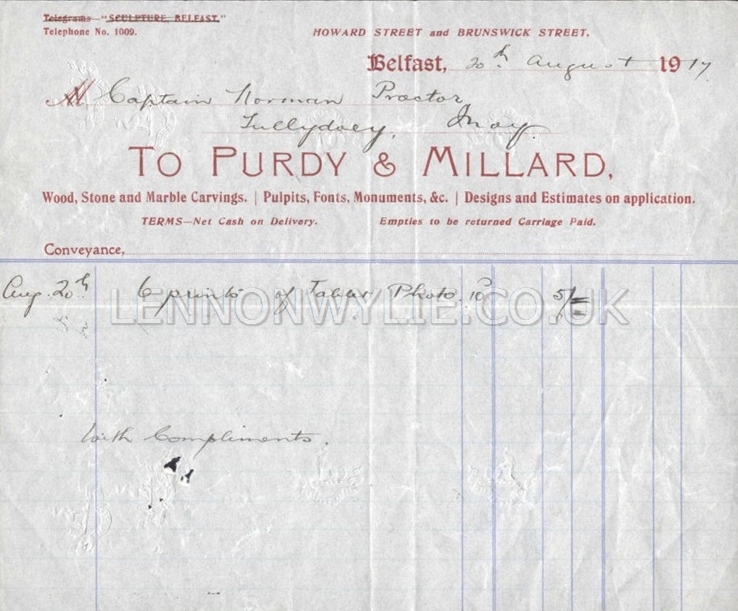 Telegrams—"SCULPTURE, BELFAST."
Telephone No. 1009.
HOWARD STREET and BRUNSWICK STREET.
Belfast, 20th August 1917
M Captain Norman Proctor
Tullydoey, Moy.
TO PURDY & MILLARD,
Wood, Stone and Marble Carvings. | Pulpits, Fonts, Monuments, &c. | Designs and Estimates on application.
TERMS—Net Cash on Delivery. Empties to be returned Carriage Paid.
Conveyance,
Aug. 20th 6 prints of Tablet Photo. 10D 5/=
LENNONWYLIE.CO.UK
With Compliments.